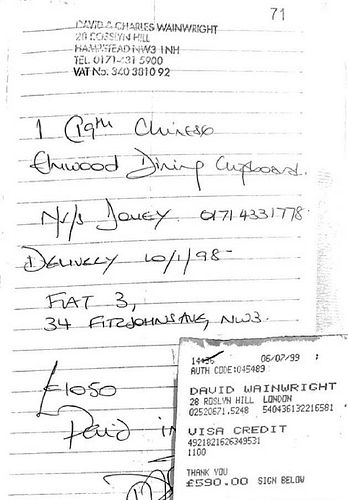 71
DAVID & CHARLES WAINWRIGHT
28 ROSSLYN HILL
HAMPSTEAD NW3 1NH
TEL 0171-431 5900
VAT No: 340 3810 92
1 C19th Chinese
Elmwood Dining Cupboard.
0171 4331778
DELIVERY 10/1/98
FLAT 3,
34 FITZJOHNS AVE, NW3.
£1050
Paid in
14:36 06/07/99
AUTH CODE:045489
DAVID WAINWRIGHT
28 ROSLYN HILL LONDON
02520671.5248 540436132216581
VISA CREDIT
4921821626349531
1100
THANK YOU
£590.00 SIGN BELOW